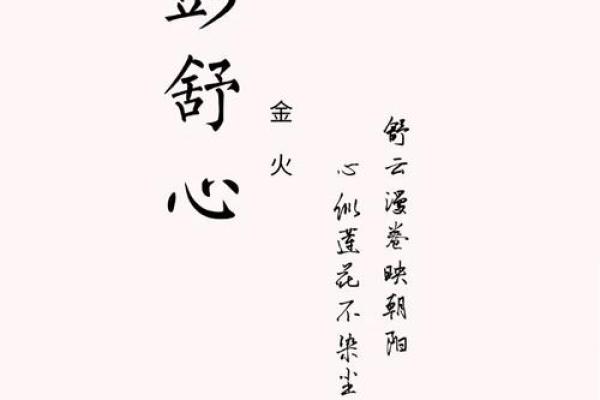 彭舒心
金火
舒云漫卷映朝阳
心似莲花不染尘